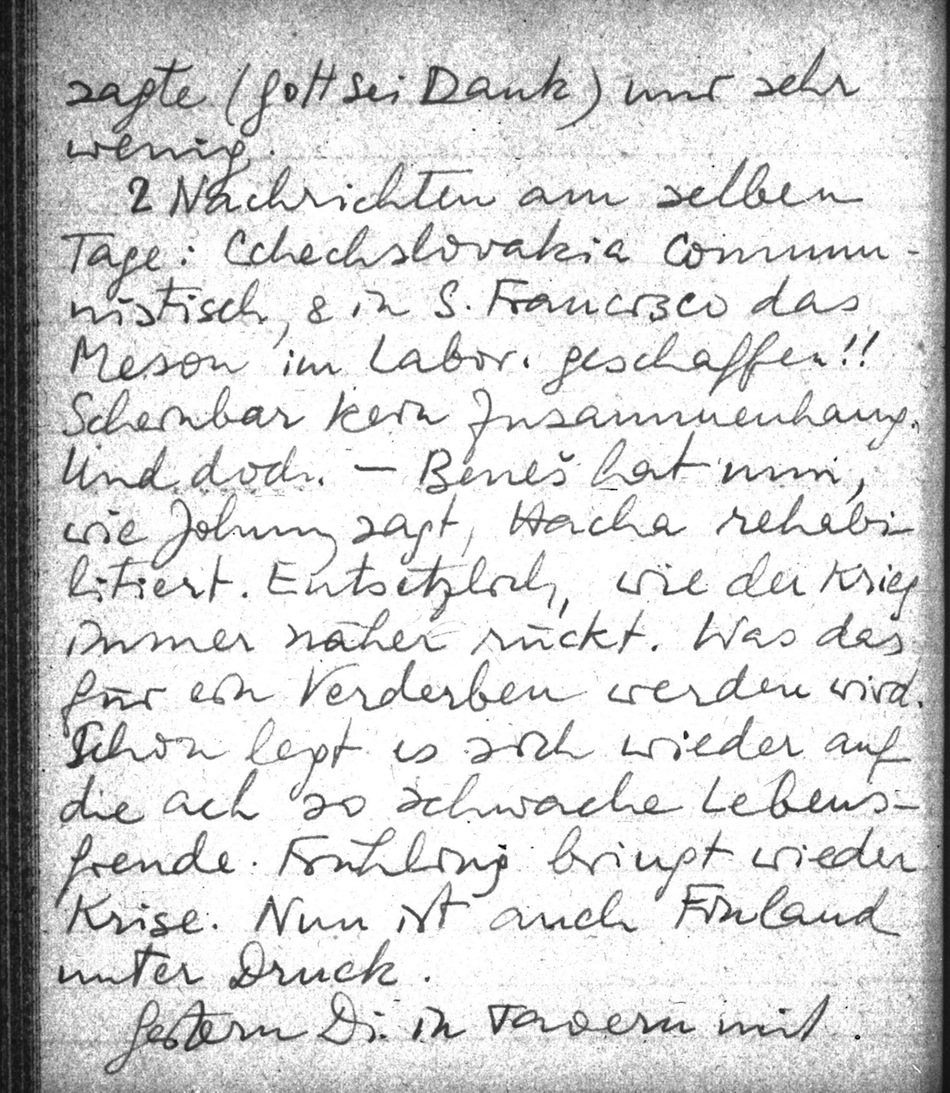 sagte (Gott sei Dank) nur sehr
wenig.
2 Nachrichten am selben
Tage: Cchechslovakia Commun-
nistisch, & in S. Francisco das
Meson im Labor. geschaffen!!
Scheinbar kein Zusammenhang.
Und doch. — Beneš hat nun,
wie Johnny sagt, Hacha rehabi-
litiert. Entsetzlich, wie der Krieg
immer näher rückt. Was das
für ein Verderben werden wird.
Schon legt es sich wieder auf
die ach so schwache Lebens-
freude. Frühling bringt wieder
Krise. Nun ist auch Finland
unter Druck.
Gestern Di. in Tavern mit